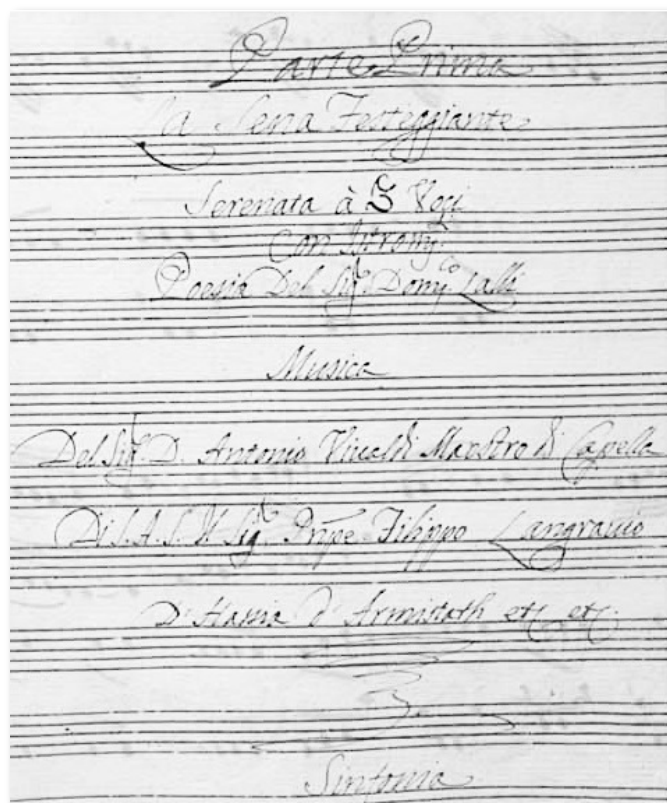 Parte Prima
La Sena Festeggiante
Serenata à 3 Voci
Con Istromti.
Poesia Del Sigr. Domco. Lalli
Musica
Del Sigr. D. Antonio Viualdi Maestro di Capella
Di S. A. S. Il Sigr. Prñpe Filippo Langrauio
D'Hassia d'Armistath etc etc.
Sinfonia